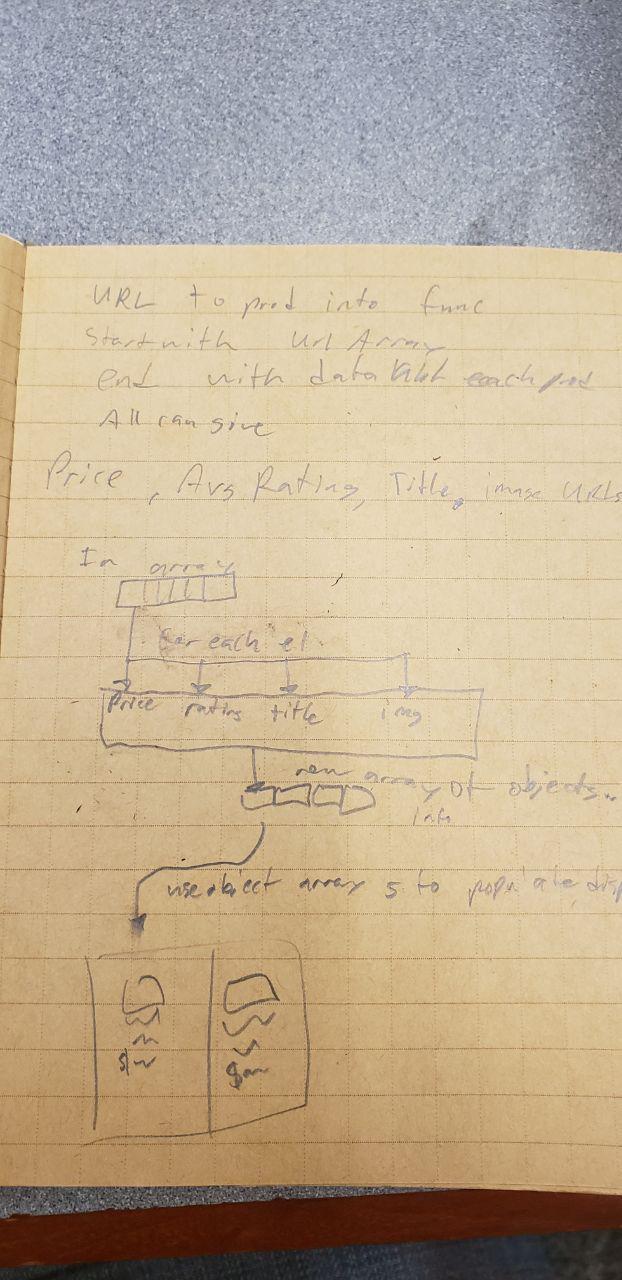 URL to prod into func
Start with Url Array
end with data each prod
All can give
Price, Avg Rating, Title, image URLs
In array
for each el
Price rating title img
new array of objects..
info
use object array s to